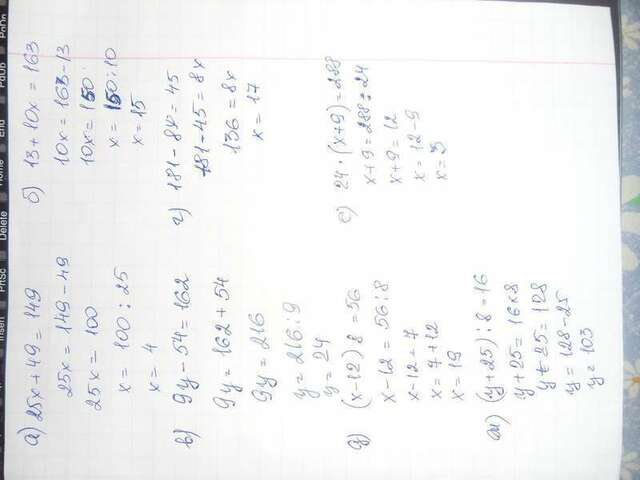 Insert PrtSc Delete Home End PgUp PgDn
а) 25x + 49 = 149
25x = 149 - 49
25x = 100
x = 100 : 25
x = 4
б) 13 + 10x = 163
10x = 163 - 13
10x = 150
x = 150 : 10
x = 15
в) 9y - 54 = 162
9y = 162 + 54
9y = 216
y = 216 : 9
y = 24
г) 181 - 8x = 45
181 - 45 = 8x
136 = 8x
x = 17
д) (x - 12) 8 = 56
x - 12 = 56 : 8
x - 12 = 7
x = 7 + 12
x = 19
е) 24 · (x + 9) = 288
x + 9 = 288 : 24
x + 9 = 12
x = 12 - 9
x = 3
ж) (y + 25) : 8 = 16
y + 25 = 16 × 8
y + 25 = 128
y = 128 - 25
y = 103